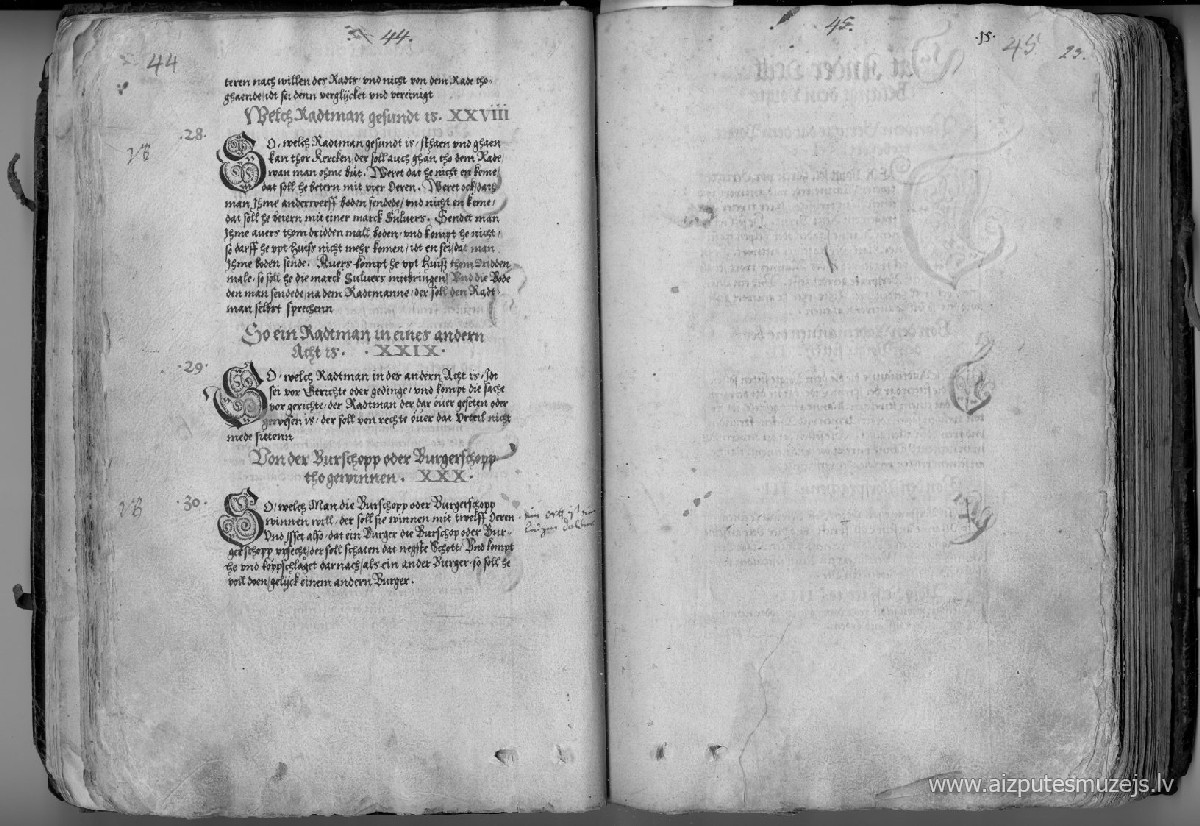 44.
44
teren nach willen des Radts vnd nicht von dem Rade tho
ghaende/dt sei denn verglycket vnd vereinigt
Welch Radtman gesundt is. XXVIII
28.
SO/welch Radtman gesundt is/sthaen vnd ghaen
kan thor Kercken/der soll auch ghan tho dem Rade/
wan man ohme but. Weret dat he nicht en kome/
dat soll he betern mit vier Oeren. Weret ock/dat
man Ihme anderwerff boden sendede/vnd nicht en kome/
dat soll he betern mit einer marck Suluers. Sendet man
Ihme auers thom dridden mall boden/vnd kompt he nicht/
so darff he vpt Huess nicht mehr komen/idt en sei/dat man
Ihme boden sende. Auers kompt he vpt Huiss thom dridden
male/so sall he die marck Suluers mitbringen/Vnd die Bode
den man sendede/na dem Radtmanne/der soll den Radt-
man selbst sprechenn
So ein Radtman in eines andern
Acht is. XXIX.
29.
SO/welch Radtman in des andern Acht is/idt
sei vor Gerichte oder gedinge/vnd kompt die sache
vor gerichte/der Radtman der dar ouer geseten oder
gewesen is/der soll von rechte ouer dat Vrteil nicht
mede sittenn
Von der Burschopp oder Burgerschopp
tho gewinnen. XXX.
30.
SO/welch Man die Burschopp oder Burgerschopp
winnen will/der soll sie winnen mit twelff Oeren
Vnd isset also/dat ein Burger die Burschop oder Bur-
gerschopp vpsecht/der soll schaten dat negste Schott/Vnd kompt
he vnd koppschlaget darnach/als ein ander Burger/so soll he
voll doen/gelyck einem andern Burger.
45.
15.
45
23.
www.aizputesmuzejs.lv